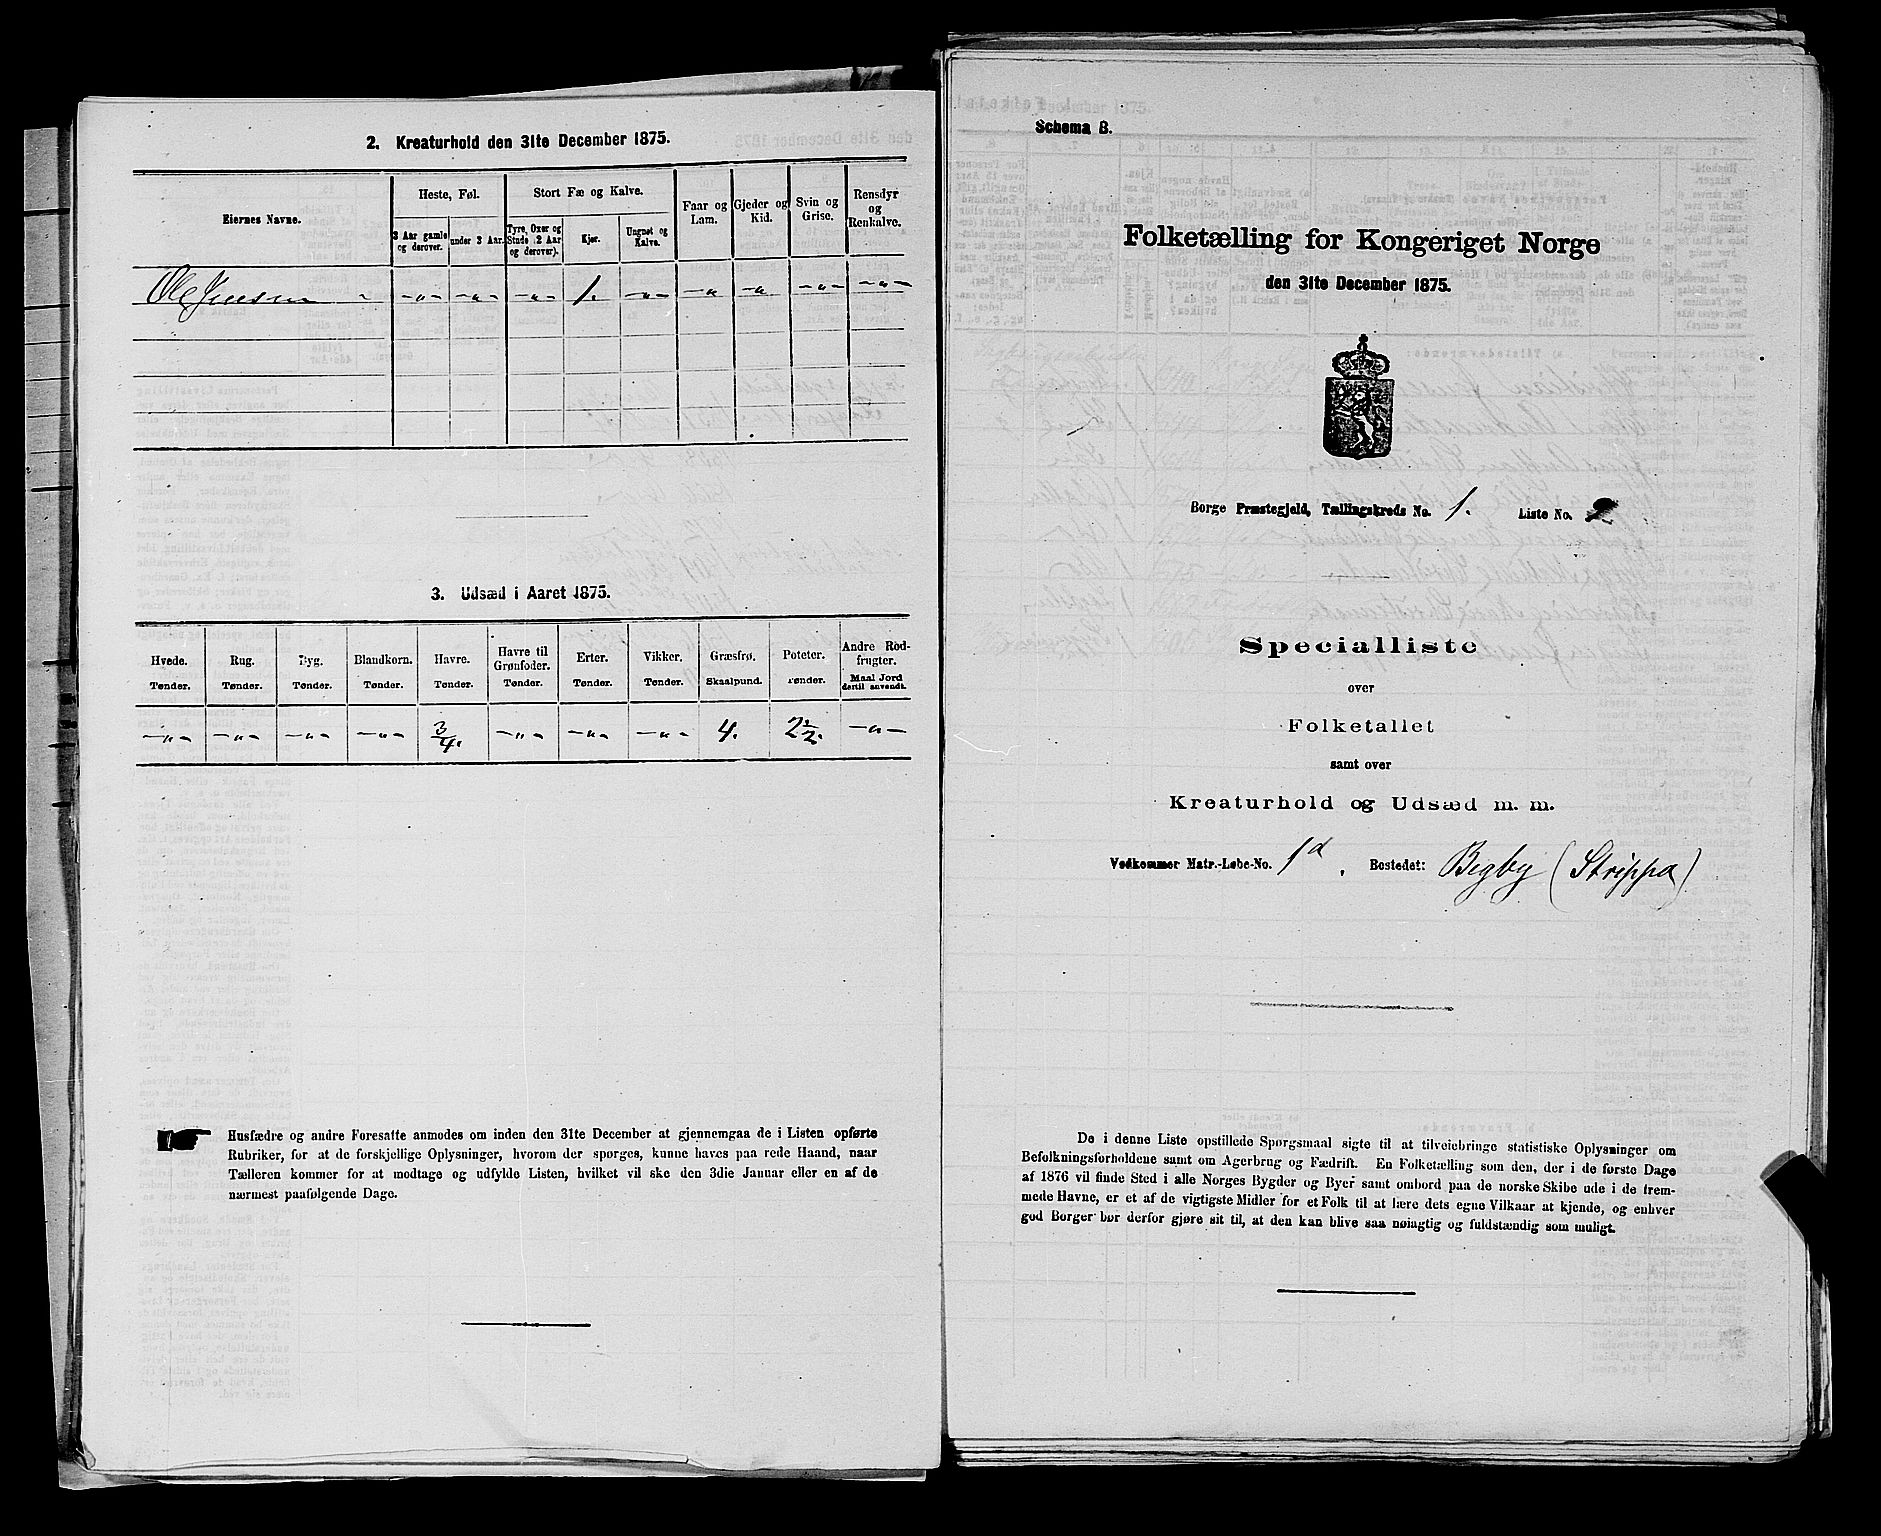 2. Kreaturhold den 31te December 1875.
Eiernes Navne.
Heste, Føl.
3 Aar gamle og derover.
under 3 Aar.
Stort Fæ og Kalve.
Tyre, Oxer og Stude (2 Aar og derover).
Kjør.
Ungnøt og Kalve.
Faar og Lam.
Gjeder og Kid.
Svin og Grise.
Rensdyr og Renkalve.
Ole Jensen - -"- -"- -"- 1. -"- -"- -"- -"- -"-
3. Udsæd i Aaret 1875.
Hvede. Rug. Byg. Blandkorn. Havre. Havre til Grønfoder. Erter. Vikker. Græsfrø. Poteter. Andre Rodfrugter.
Tønder. Tønder. Tønder. Tønder. Tønder. Tønder. Tønder. Tønder. Skaalpund. Tønder. Maal Jord dertil anvendt.
-"- -"- -"- -"- 3/4. -"- -"- -"- 4. -"-
Husfædre og andre Foresatte anmodes om inden den 31te December at gjennemgaa de i Listen opførte
Rubriker, for at de forskjellige Oplysninger, hvorom der spørges, kunne haves paa rede Haand, naar
Tælleren kommer for at modtage og udfylde Listen, hvilket vil ske den 3die Januar eller en af de
nærmest paafølgende Dage.
Schema B.
Folketælling for Kongeriget Norge
den 31te December 1875.
Borge Præstegjeld, Tællingskreds No. 1. Liste No. 2
Specialliste
over
Folketallet
samt over
Kreaturhold og Udsæd m. m.
Vedkommer Matr.-Løbe-No. 1d. Bostedet: Begby (Strippa)
De i denne Liste opstillede Spørgsmaal sigte til at tilveiebringe statistiske Oplysninger om
Befolkningsforholdene samt om Agerbrug og Fædrift. En Folketælling som den, der i de første Dage
af 1876 vil finde Sted i alle Norges Bygder og Byer samt ombord paa de norske Skibe ude i de frem-
mede Havne, er et af de vigtigste Midler for et Folk til at lære dets egne Vilkaar at kjende, og enhver
god Borger bør derfor gjøre sit til, at den kan blive saa nøiagtig og fuldstændig som muligt.